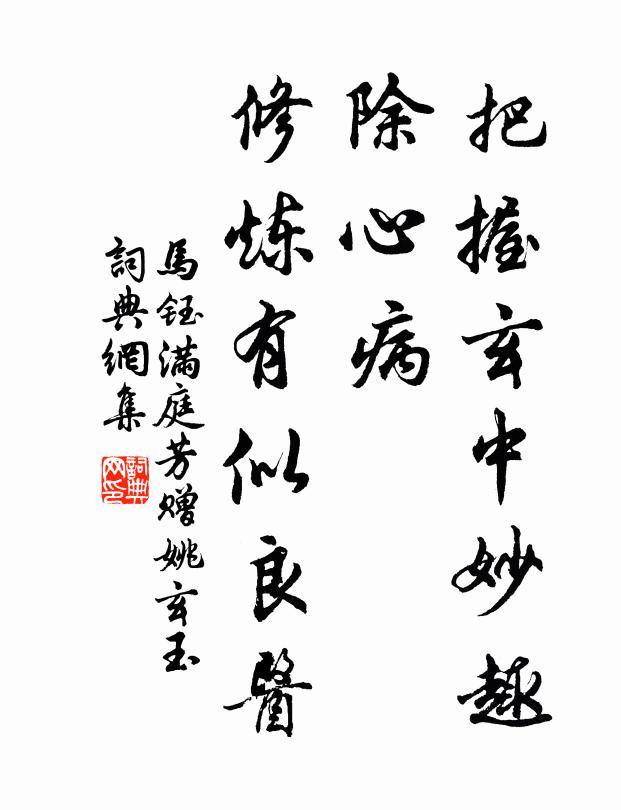 把握玄中妙趣
除心病
修炼有似良醫
馬鈺满庭芳赠姚玄玉
詞典網集
詞典网印